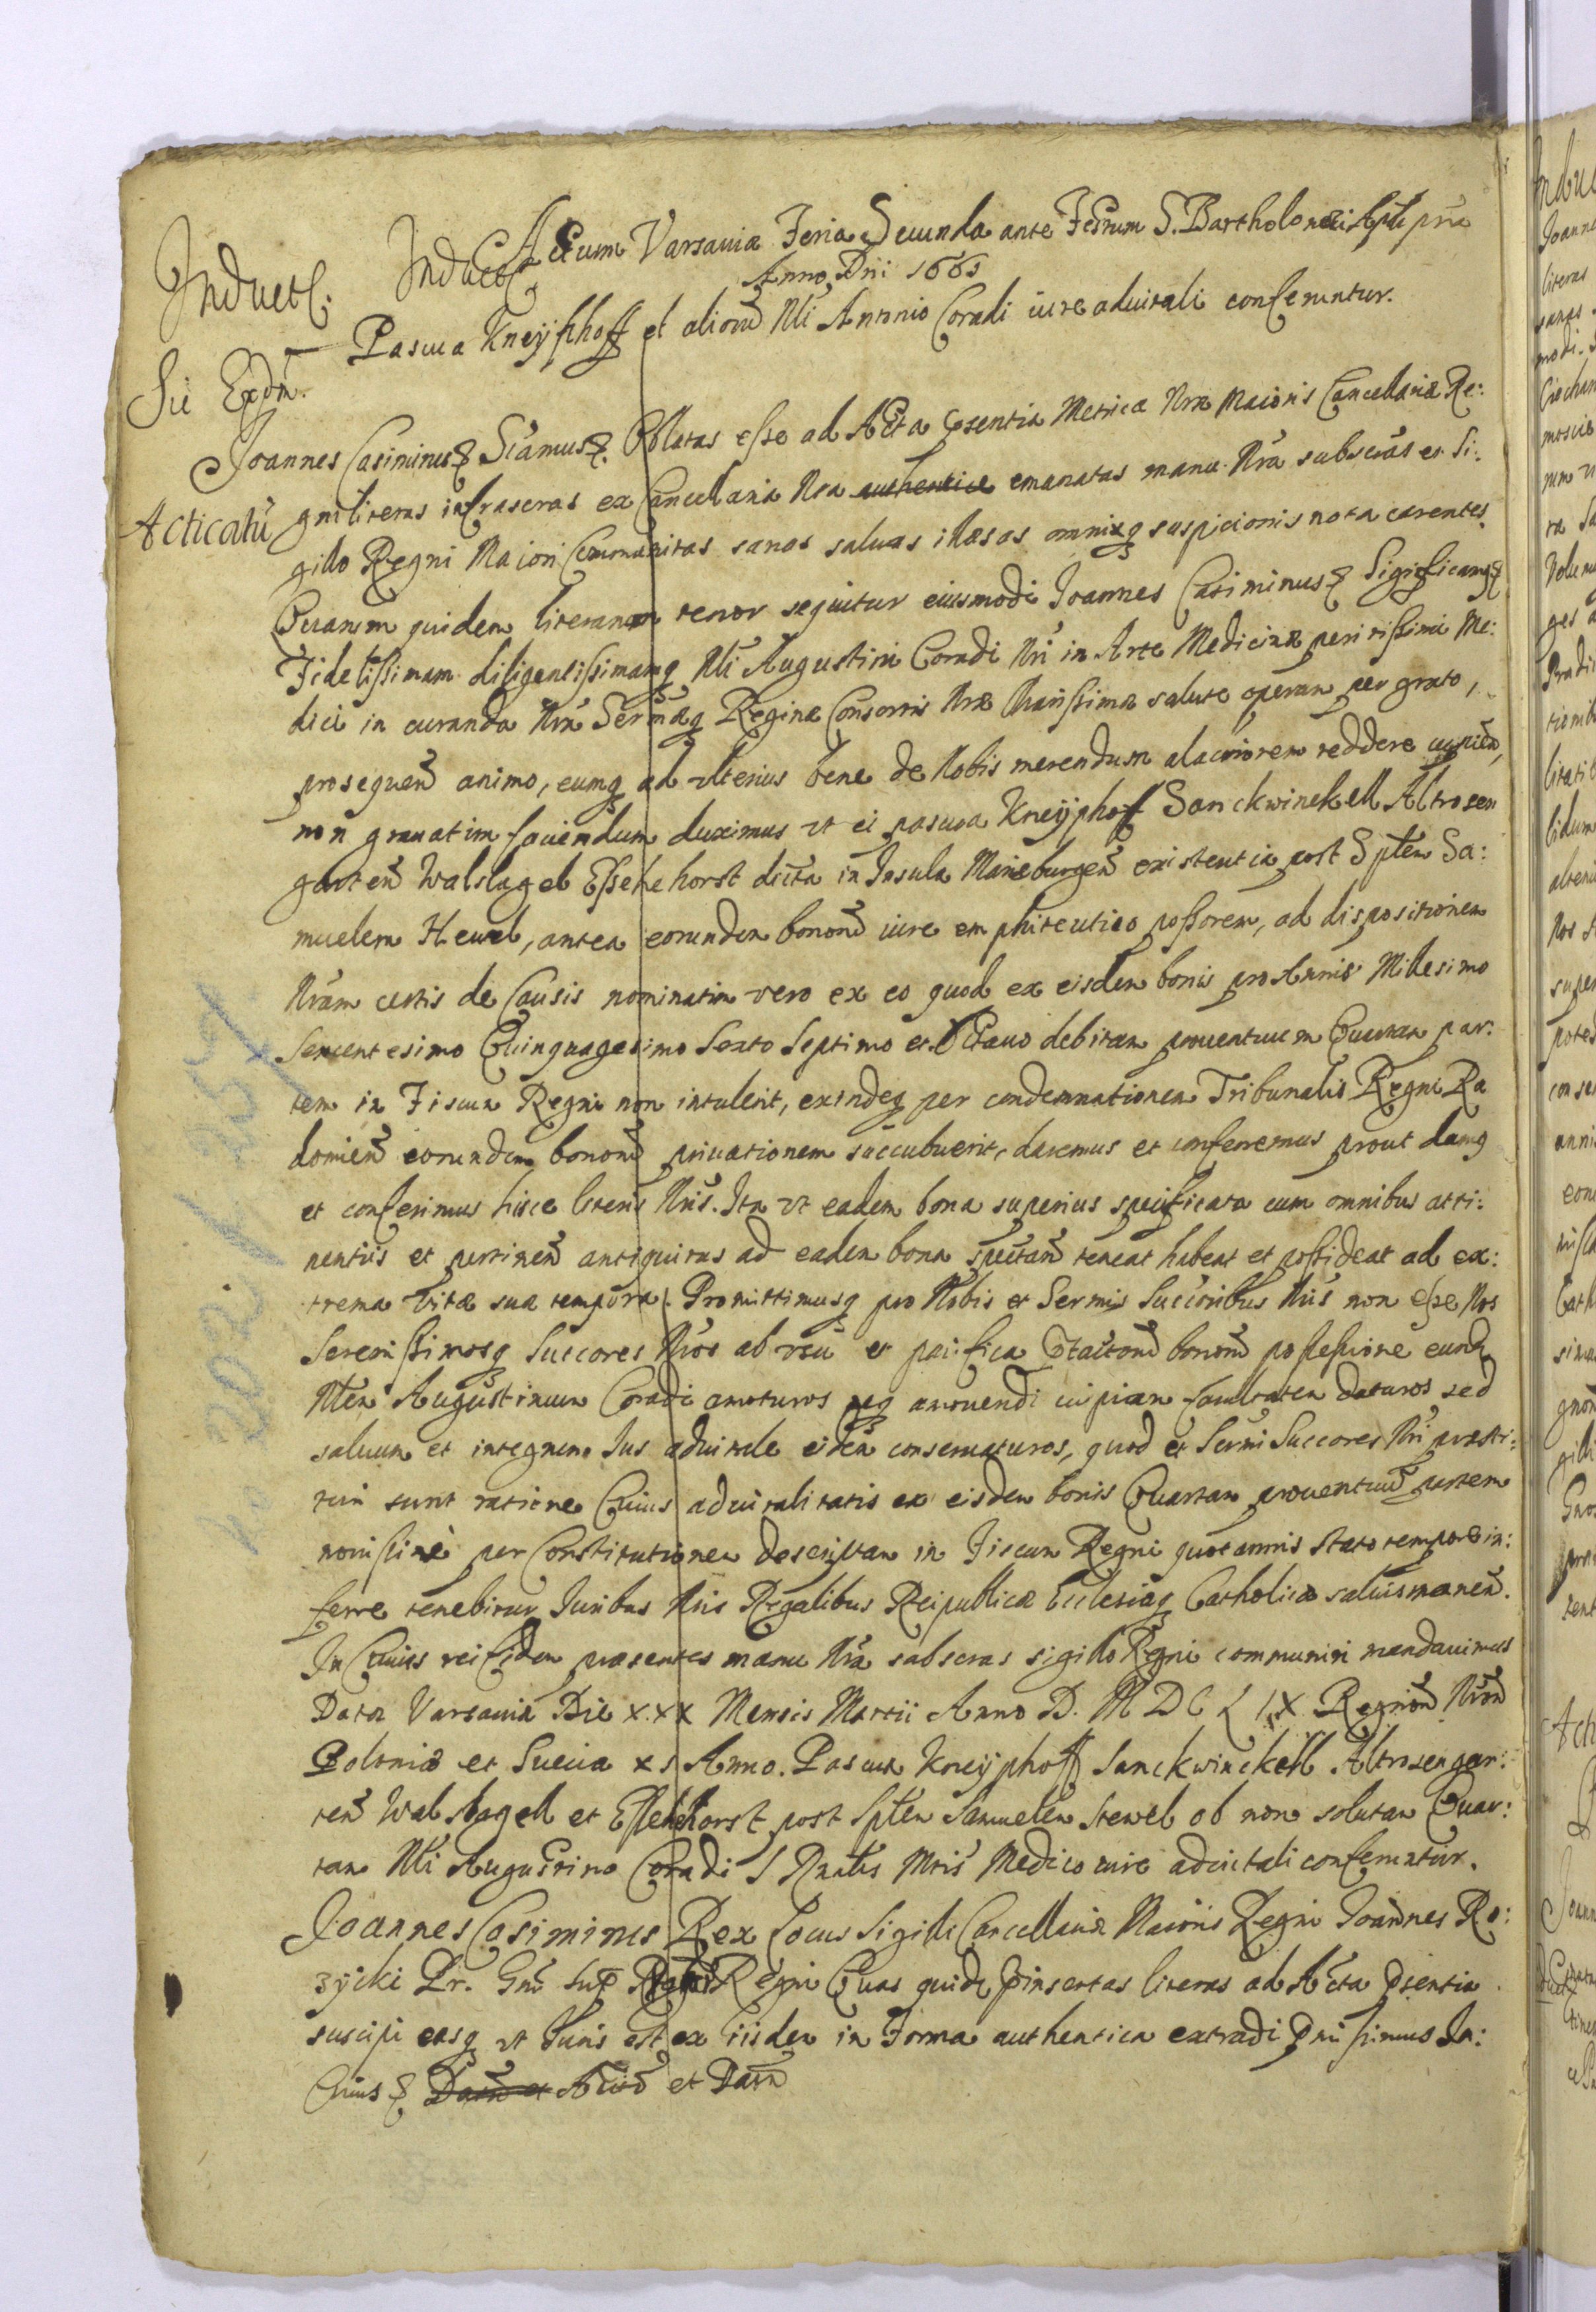 Inductẽ.
Inductẽ. Actum Varsaviæ Feria Secunda ante Festum S. Bartholomæi Apli pria
Anno Dñi 1661
Pascua Kneÿphoff et aliorũ Nli Antonio Coradi iure aduitali conferuntur.
Sũ Expdn.
Joannes Casimirus Sciamus. Oblatas esse ad Acta psentia Metricæ Nræ Maioris Cancellariæ Re:
Acticatũ
gni literas infrascras ex Cancellaria Nra authentice emanatas manu Nra subscras et Si:
gillo Regni Maiori Cõmunitas sanas saluas illæsas omniq suspicionis nota carentes.
Quarum quidem literarum tenor sequitur eiusmodi Joannes Casimirus Significamus
Fidelissimam diligentissimamq Nli Augustini Coradi Nri in Arte Medicinæ peritissimi Me:
dici in curanda Nra Sermæq Reginæ Consortis Nræ Charissimæ salute operam per grato,
prosequeñ animo, eumq ad vlterius bene de Nobis merendum alacriorem reddere cupien,
non grauatim fauiendum duximus vt ei pascua Kneÿphoff Sanckwinckell Altrosen
garteñ Walslagel Essehehorst dicta in Insula Marieburgeñ existentia post Spten Sa:
muelem Hewel, antea eorundem bonorũ iure emphiteutico possorem, ad dispositionem
Nram certis de Causis nominatim vero ex eo quod ex eisdem bonis pro Annis Millesimo
Sexcentesimo Quinquagesimo Sexto Septimo et Octauo debitam prouentuum Quartam par:
tem in Fiscum Regni non intulerit, exindeq per condemnationem Tribunalis Regni Ra
domieñ eorundem bonorũ priuationem succubuerit, daremus et conferremus prout damq
et conferimus hisce literis Nris. Ita vt eadem bona superius specificata cum omnibus atti:
nentiis et pertineñ antiquitus ad eadem bona spectañ teneat habeat et possideat ad ex:
trema vitæ suæ tempora. Promittimusq pro Nobis et Sermis Succoribus Nris non esse Nos
Serenissimosq Succores Nros ab vsu et pacifica pfactorũ bonorũ possessione eund
Nlem Augustinum Coradi amoturos neq amouendi cuipiam facultatem daturos sed
saluum et integrum Ius aduitale eidem conseruaturos, quod et Sermi Succores Nri præsti:
turi sunt ratione Cuius aduitalitatis ex eisdem bonis Quartam prouentuũ partem
nouissimè per Constitutionem descriptam in Fiscum Regni quotannis stato tempore in:
ferre tenebitur Iuribus Nris Regalibus Reipublicæ Ecclesiæq Catholicæ saluis maneñ.
In Cuius rei fidem præsentes manu Nra subscras sigillo Regni communiri mandauimus
Datæ Varsauiæ Die XXX Mensis Martii Anno D. MDCLIX Regnorũ Nrorũ
Poloniæ et Sueciæ XI Anno. Pascua Kneÿphoff Sanckwinckell Altrosengar:
teñ Walslagell et Essehehorst post Spten Samuelem Hewel ob non solutam Quar:
tam Nli Augustino Coradi S Rgalis Mtis Medico iure aduitali conferuntur.
Joannes Casimirus Rex Locus Sigilli Cancellariæ Maioris Regni Joannes Ro:
zÿcki Pr. Regni Quas quidē pinsertas literas ad Acta psentia
suscipi easq vt Iuris est ex iisdem in Forma authentica extradi pmisimus In:
Cuius Datũ et Actũ et Datũ